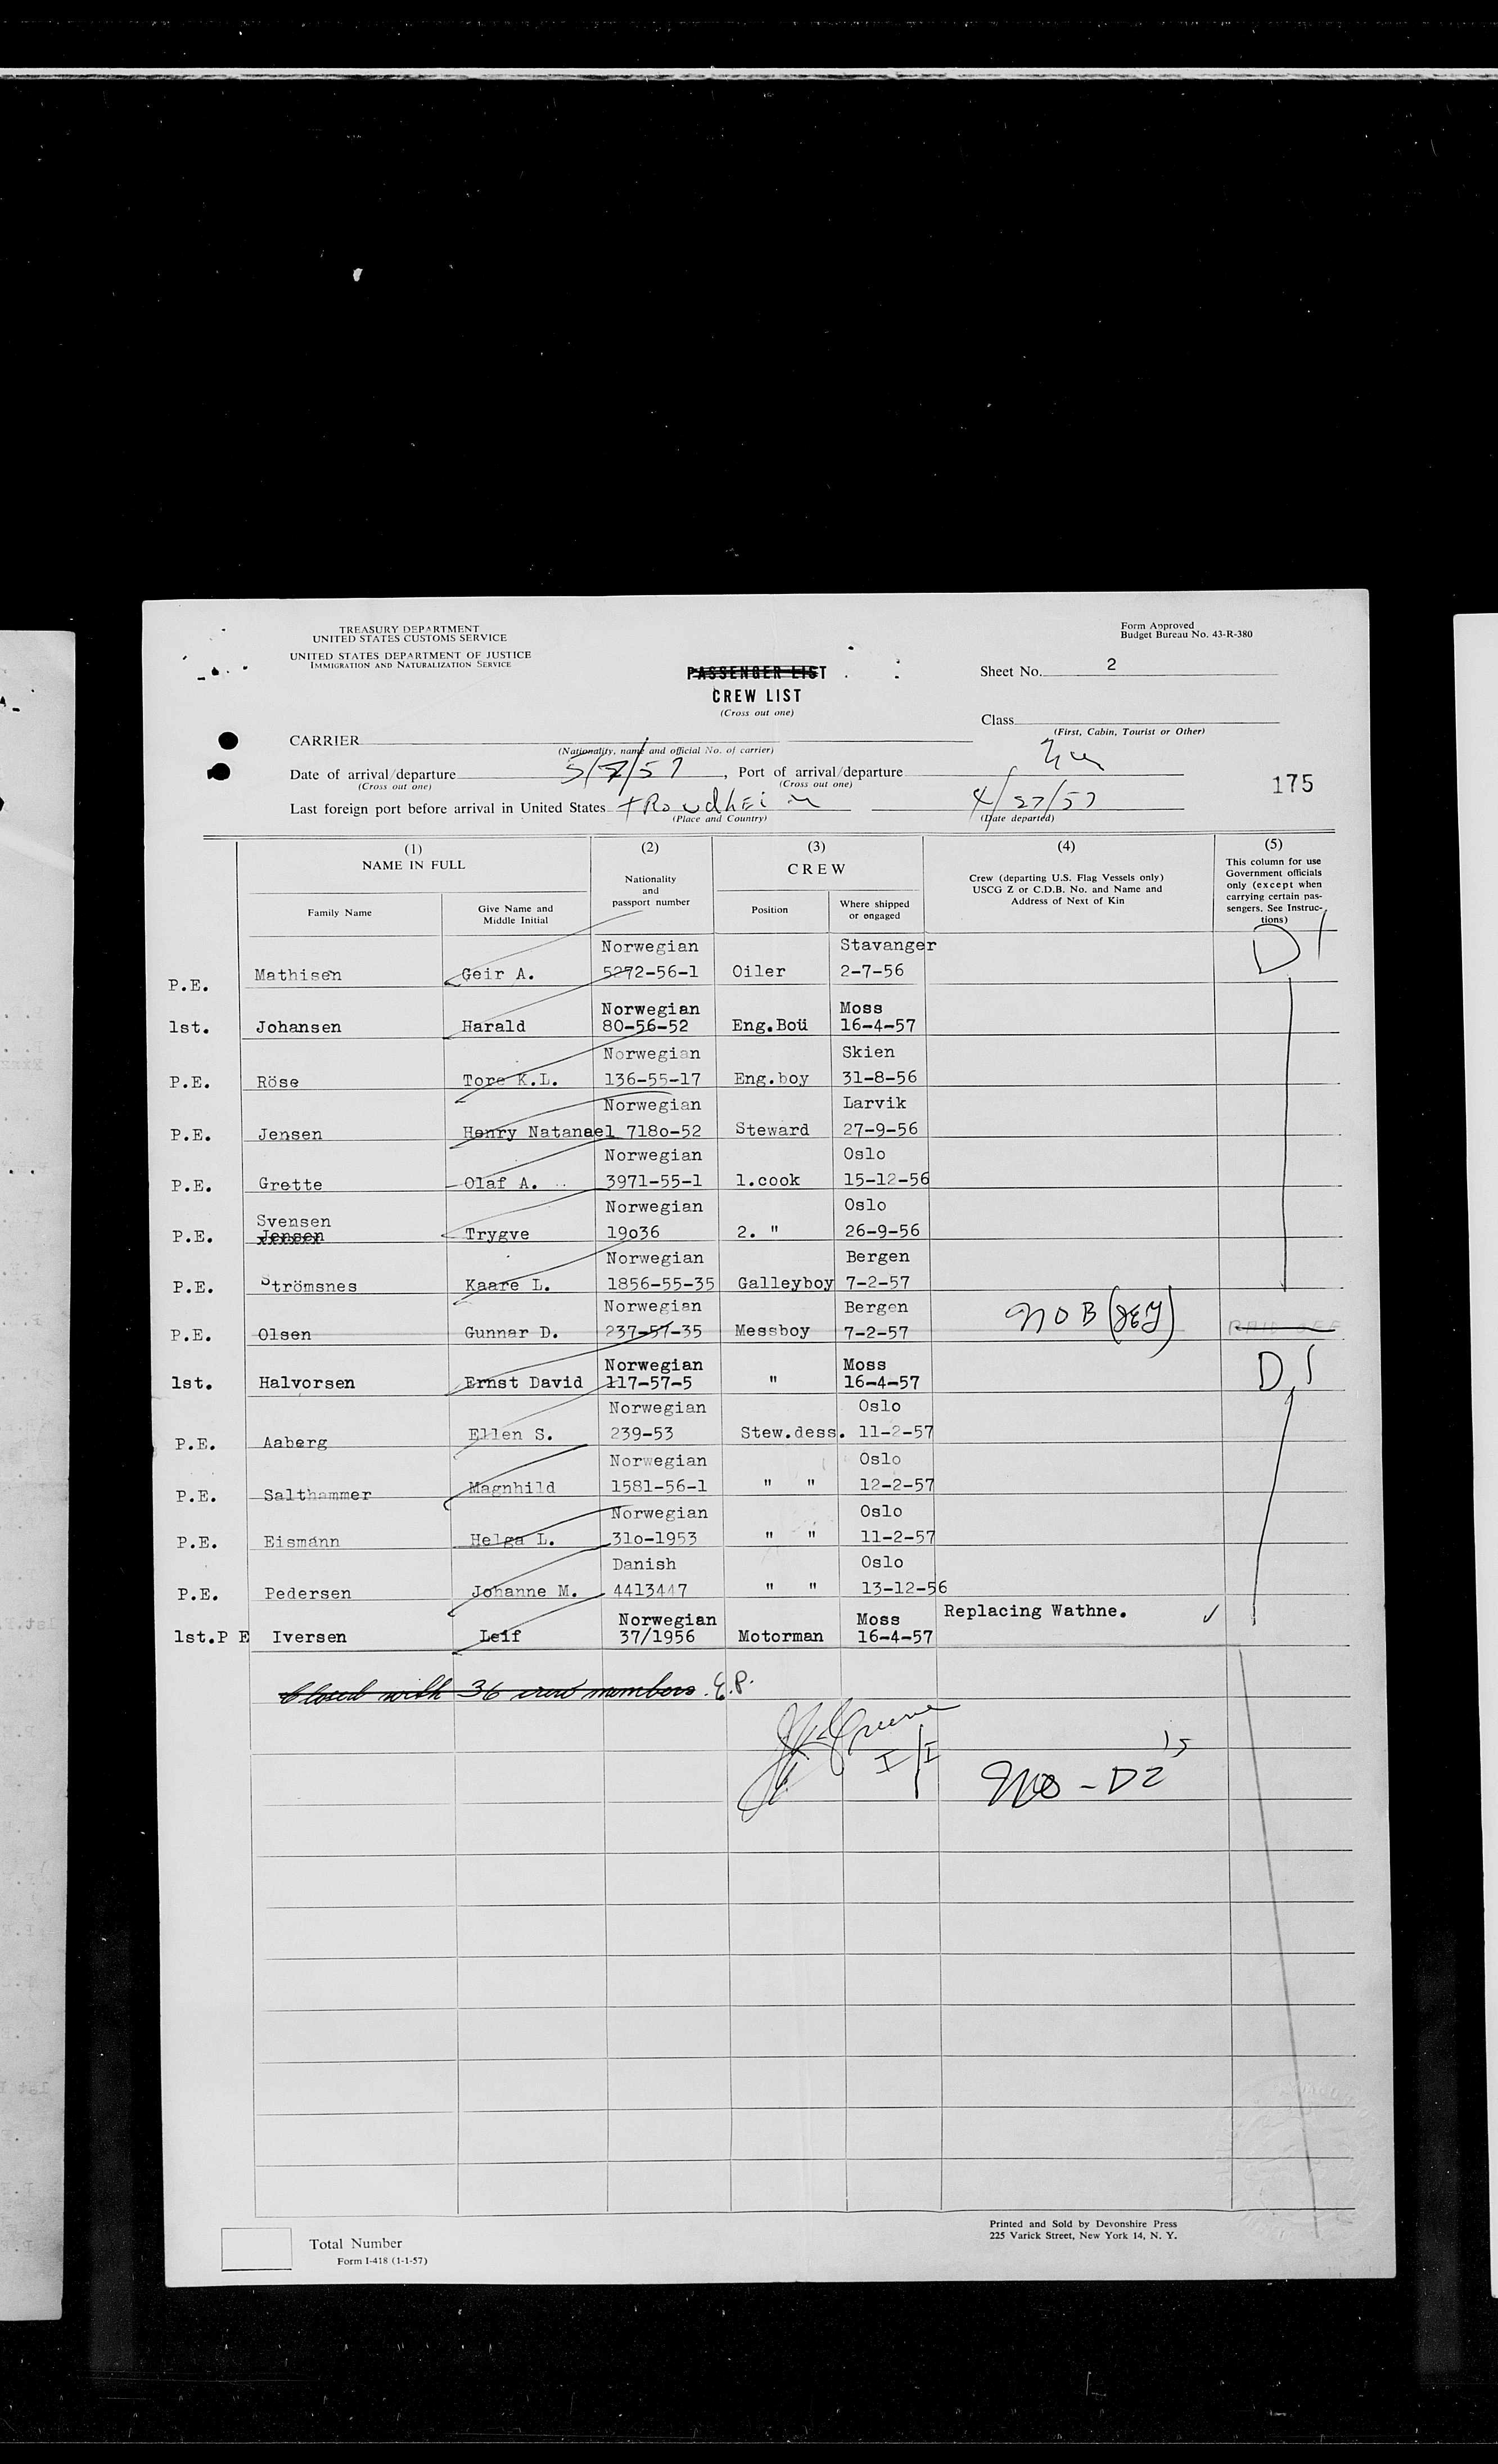 TREASURY DEPARTMENT
UNITED STATES CUSTOMS SERVICE
UNITED STATES DEPARTMENT OF JUSTICE
IMMIGRATION AND NATURALIZATION SERVICE
Form Approved
Budget Bureau No. 43-R-380
PASSENGER LIST
CREW LIST
(Cross out one)
Sheet No. 2
Class
(First, Cabin, Tourist or Other)
CARRIER
(Nationality, name and official No. of carrier)
Date of arrival/departure 5/7/57, Port of arrival/departure
(Cross out one) (Cross out one)
175
Last foreign port before arrival in United States tRoudhEim 4/27/57
(Place and Country) (Date departed)
(1) (2) (3) (4) (5)
NAME IN FULL
Nationality and passport number
CREW
Crew (departing U.S. Flag Vessels only) USCG Z or C.D.B. No. and Name and Address of Next of Kin
This column for use Government officials only (except when carrying certain passengers. See Instructions)
Family Name Give Name and Middle Initial Position Where shipped or engaged
Norwegian Stavanger D1
P.E. Mathisen Geir A. 5272-56-1 Oiler 2-7-56
Norwegian Moss
1st. Johansen Harald 80-56-52 Eng.Boü 16-4-57
Norwegian Skien
P.E. Röse Tore K.L. 136-55-17 Eng.boy 31-8-56
Norwegian Larvik
P.E. Jensen Henry Natanael 718o-52 Steward 27-9-56
Norwegian Oslo
P.E. Grette Olaf A. 3971-55-1 1.cook 15-12-56
Svensen Norwegian Oslo
P.E. Jensen Trygve 19o36 2. " 26-9-56
Norwegian Bergen
P.E. Strömsnes Kaare L. 1856-55-35 Galleyboy 7-2-57
Norwegian Bergen NOB
P.E. Olsen Gunnar D. 237-57-35 Messboy 7-2-57
Norwegian Moss D1
1st. Halvorsen Ernst David 117-57-5 " 16-4-57
Norwegian Oslo
P.E. Aaberg Ellen S. 239-53 Stew.dess. 11-2-57
Norwegian Oslo
P.E. Salthammer Magnhild 1581-56-1 " " 12-2-57
Norwegian Oslo
P.E. Eismann Helga L. 31o-1953 " " 11-2-57
Danish Oslo
P.E. Pedersen Johanne M. 4413447 " " 13-12-56
Norwegian Moss Replacing Wathne. ✓
1st.P E Iversen Leif 37/1956 Motorman 16-4-57
Closed with 36 crew members. E.P.
I/I
No - D2
Total Number
Form I-418 (1-1-57)
Printed and Sold by Devonshire Press
225 Varick Street, New York 14, N. Y.